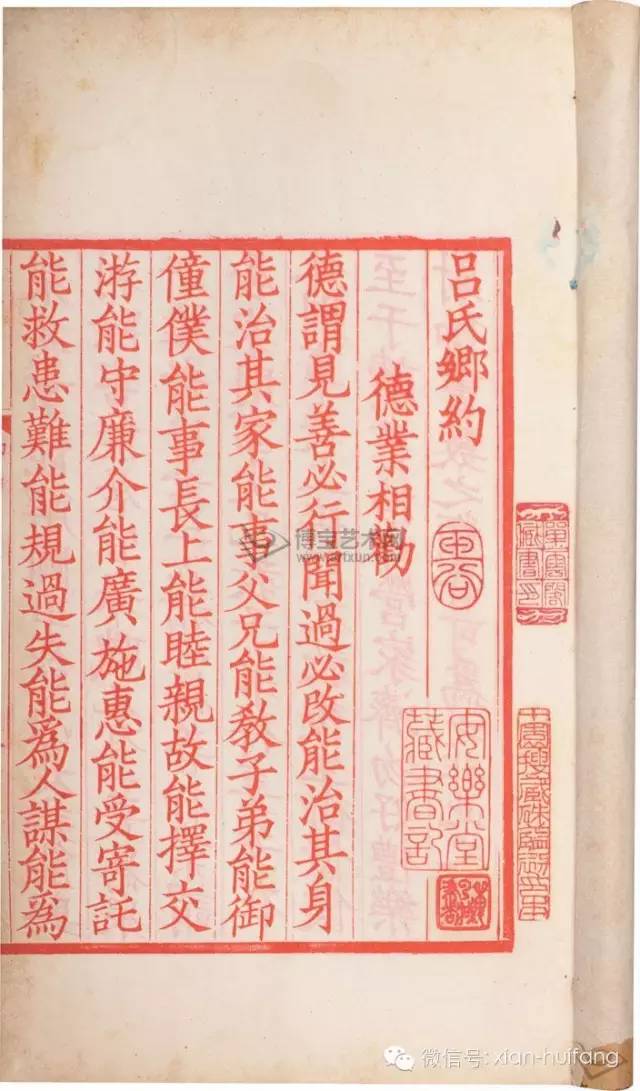 吕氏鄉約
德業相勸
德謂見善必行聞過必改能治其身
能治其家能事父兄能敎子弟能御
僮僕能事長上能睦親故能擇交
游能守廉介能廣施惠能受寄託
能救患難能規過失能爲人謀能爲
安樂堂
藏書記
博宝艺术网
微信号: xian-huifang